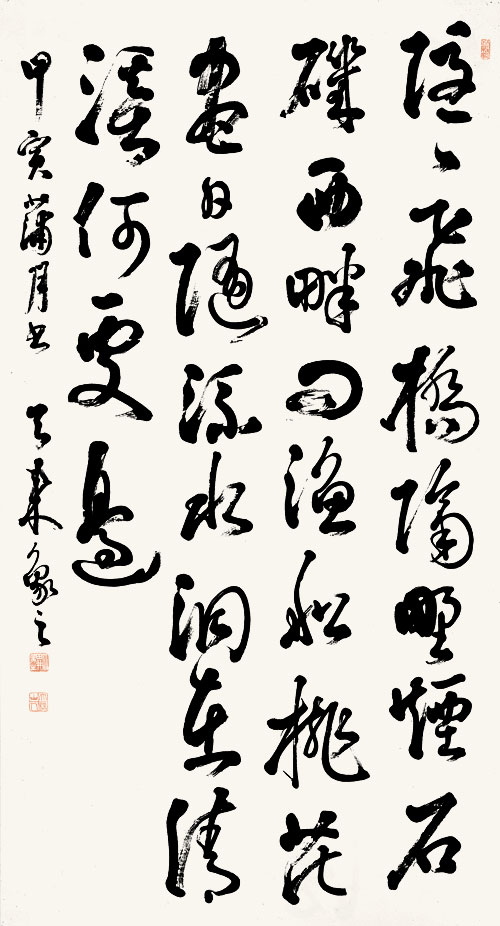 隱〻飛橋隔野煙石
磯西畔問漁船桃花
盡日隨流水洞在清
溪何處邊
甲寅蒲月書 象之